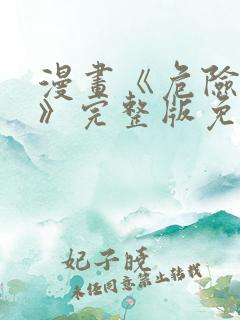 漫畫《危險
》完整版免
妃子曉
未任同意禁止转载